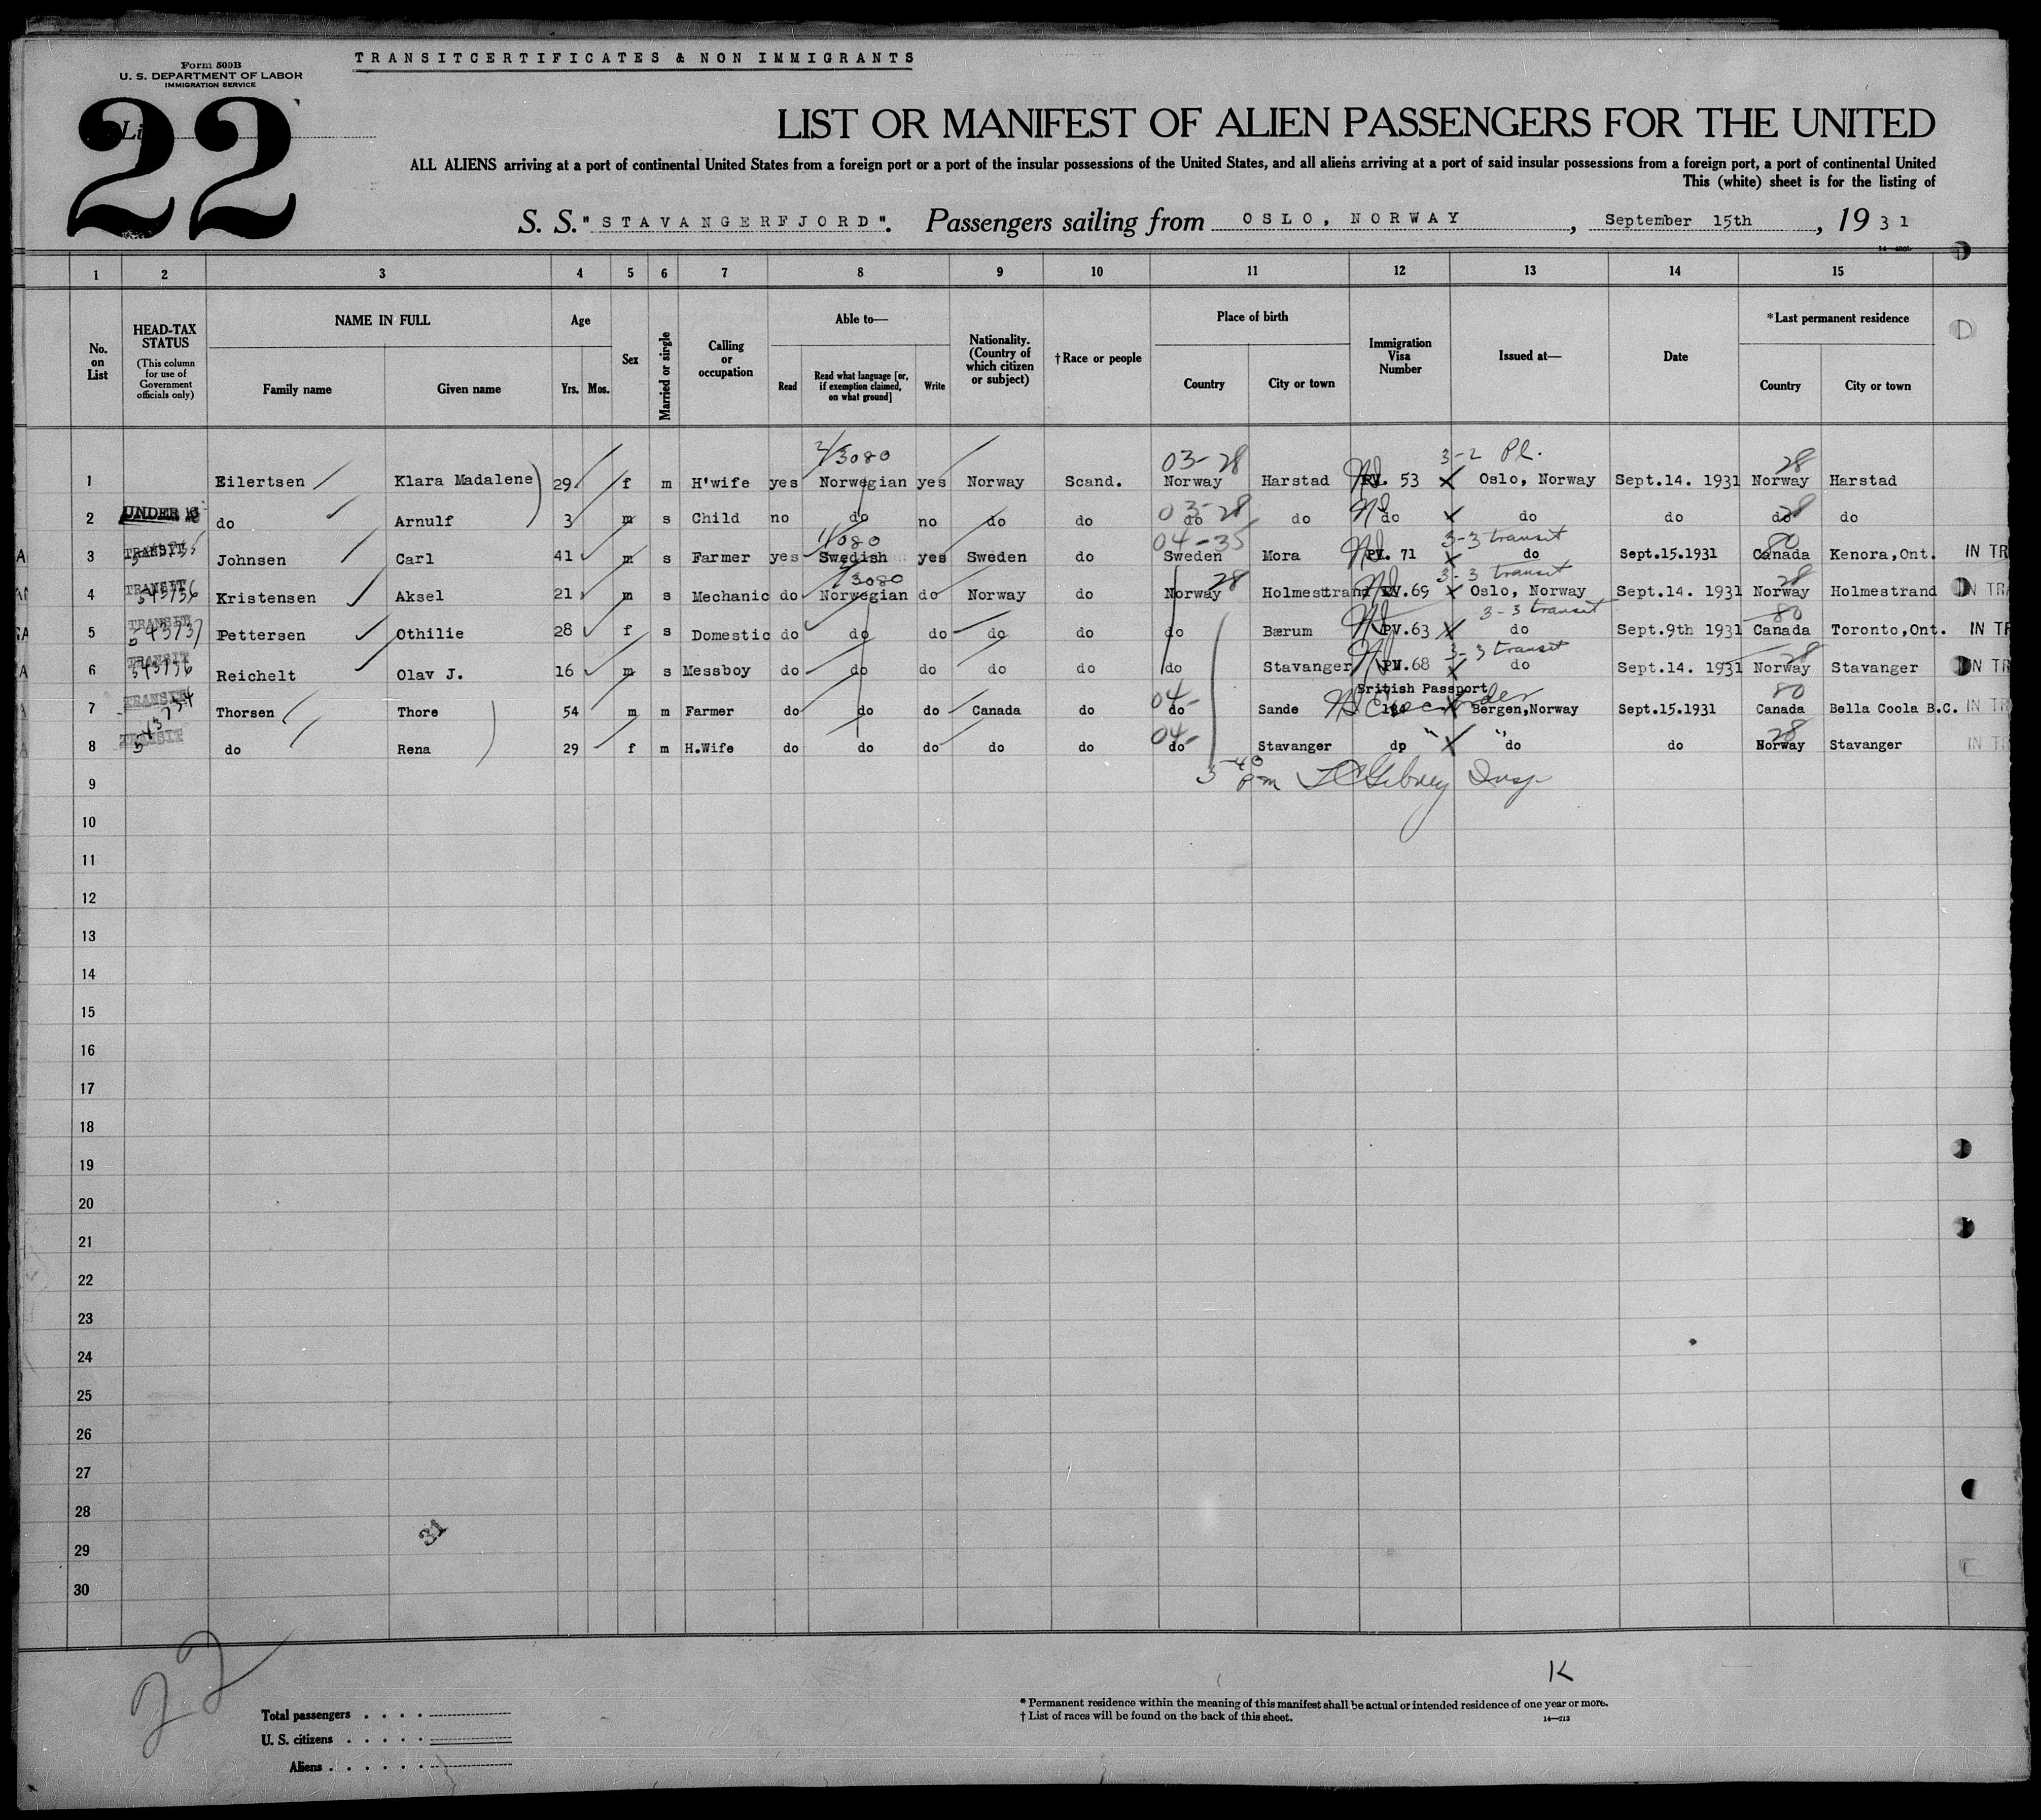 TRANSITCERTIFICATES & NON IMMIGRANTS
Form 500B
U. S. DEPARTMENT OF LABOR
IMMIGRATION SERVICE
22
LIST OR MANIFEST OF ALIEN PASSENGERS FOR THE UNITED
ALL ALIENS arriving at a port of continental United States from a foreign port or a port of the insular possessions of the United States, and all aliens arriving at a port of said insular possessions from a foreign port, a port of continental United
This (white) sheet is for the listing of
S. S. "STAVANGERFJORD". Passengers sailing from OSLO, NORWAY, September 15th, 1931
1 2 3 4 5 6 7 8 9 10 11 12 13 14 15
No. on List
HEAD-TAX STATUS
(This column for use of Government officials only)
NAME IN FULL
Family name Given name
Age
Yrs. Mos.
Sex
Married or single
Calling or occupation
Able to—
Read Read what language [or, if exemption claimed, on what ground] Write
Nationality. (Country of which citizen or subject)
†Race or people
Place of birth
Country City or town
Immigration Visa Number
Issued at—
Date
*Last permanent residence
Country City or town
2/3080 03-28 3-2 Pl. 28
1 Eilertsen Klara Madalene 29 f m H'wife yes Norwegian yes Norway Scand. Norway Harstad PV. 53 Oslo, Norway Sept.14. 1931 Norway Harstad
03-28 28
2 UNDER 16 do Arnulf 3 m s Child no do no do do do do do do do do do
1/080 04-35 3-3 transit 80
3 TRANSIT Johnsen Carl 41 m s Farmer yes Swedish yes Sweden do Sweden Mora PV. 71 do Sept.15.1931 Canada Kenora,Ont. IN TR
3080 28 3-3 transit 28
4 TRANSIT 543736 Kristensen Aksel 21 m s Mechanic do Norwegian do Norway do Norway Holmestrand PV.69 Oslo, Norway Sept.14. 1931 Norway Holmestrand IN TRA
3-3 transit 80
5 TRANSIT 543737 Pettersen Othilie 28 f s Domestic do do do do do do Bærum PV.63 do Sept.9th 1931 Canada Toronto,Ont. IN TR
3-3 transit 28
6 TRANSIT 543736 Reichelt Olav J. 16 m s Messboy do do do do do do Stavanger PV.68 do Sept.14. 1931 Norway Stavanger IN TR
04- British Passport 80
7 TRANSIT 543734 Thorsen Thore 54 m m Farmer do do do Canada do do Sande 184 Bergen,Norway Sept.15.1931 Canada Bella Coola B.C. IN TR
04- 28
8 TRANSIT do Rena 29 f m H.Wife do do do do do do Stavanger dp " "do do Norway Stavanger IN TR
9 3-40 pm Insp
10
11
12
13
14
15
16
17
18
19
20
21
22
23
24
25
26
27
28
31
29
30
22
K
Total passengers
U. S. citizens
Aliens
* Permanent residence within the meaning of this manifest shall be actual or intended residence of one year or more.
† List of races will be found on the back of this sheet.
14—213